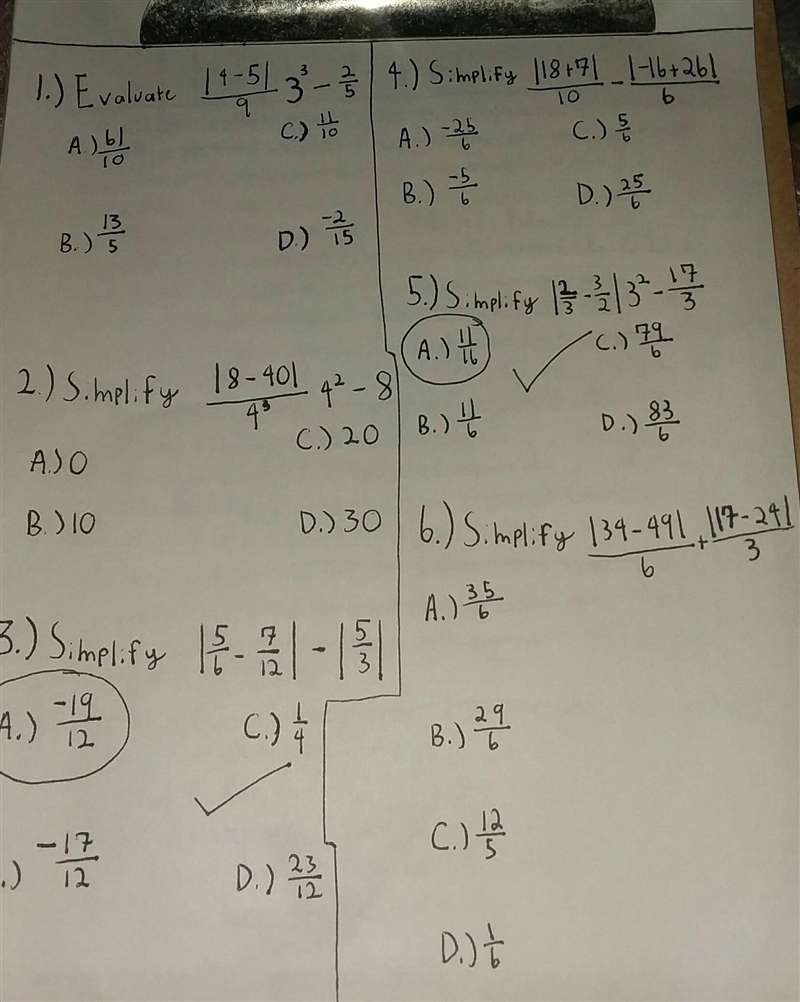 1.) Evaluate |4-5|/9 3³ - 2/5
A.) 61/10
C.) 11/10
B.) 13/5
D.) -2/15
2.) Simplify |8-40|/4³ 4² - 8
A.) 0
C.) 20
B.) 10
D.) 30
3.) Simplify |5/6 - 7/12| - |5/3|
A.) -19/12
C.) 1/4
.) -17/12
D.) 23/12
4.) Simplify |18+7|/10 - |-16+26|/6
A.) -25/6
C.) 5/6
B.) -5/6
D.) 25/6
5.) Simplify |2/3 - 3/2| 3² - 17/3
A.) 11/16
C.) 79/6
B.) 11/6
D.) 83/6
6.) Simplify |34-49|/6 + |17-24|/3
A.) 35/6
B.) 29/6
C.) 12/5
D.) 1/6